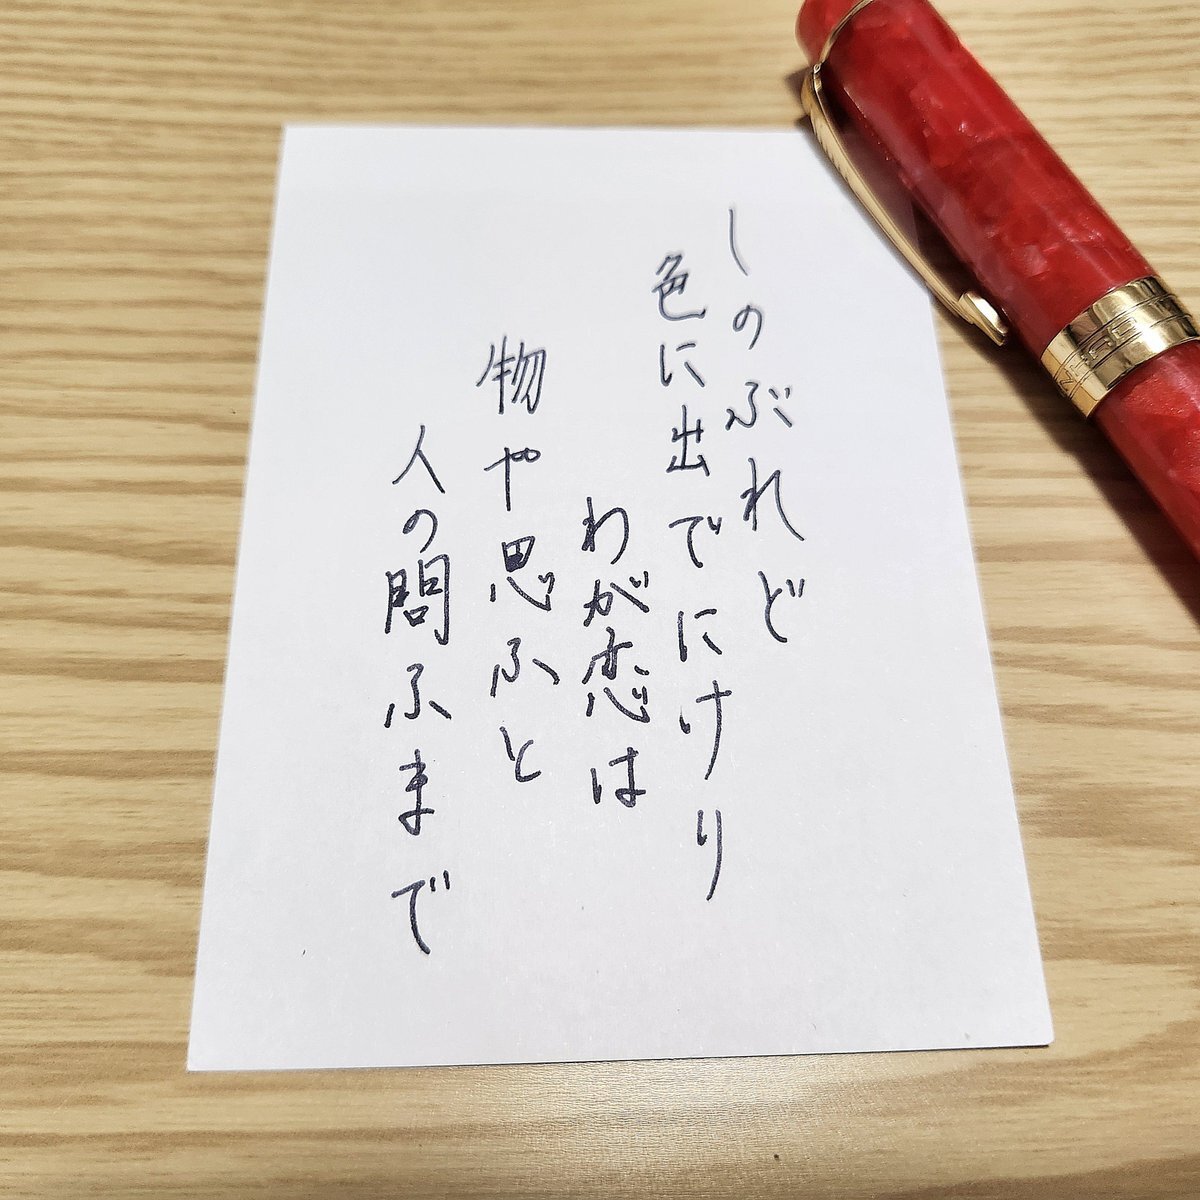 しのぶれど
色に出でにけり
わが恋は
物や思ふと
人の問ふまで